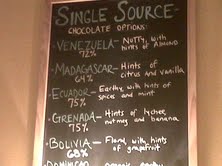 SINGLE SOURCE-
CHOCOLATE OPTIONS:
-VENEZUELA- NUTTY, with
72% hints of Almond
-MADAGASCAR- Hints of
64% citrus and vanilla
-ECUADOR- Earthy with hints of
75% spices and mint
-GRENADA- Hints of lychee,
75% nutmeg and banana
-BOLIVIA- with
68% hints of grapefruit